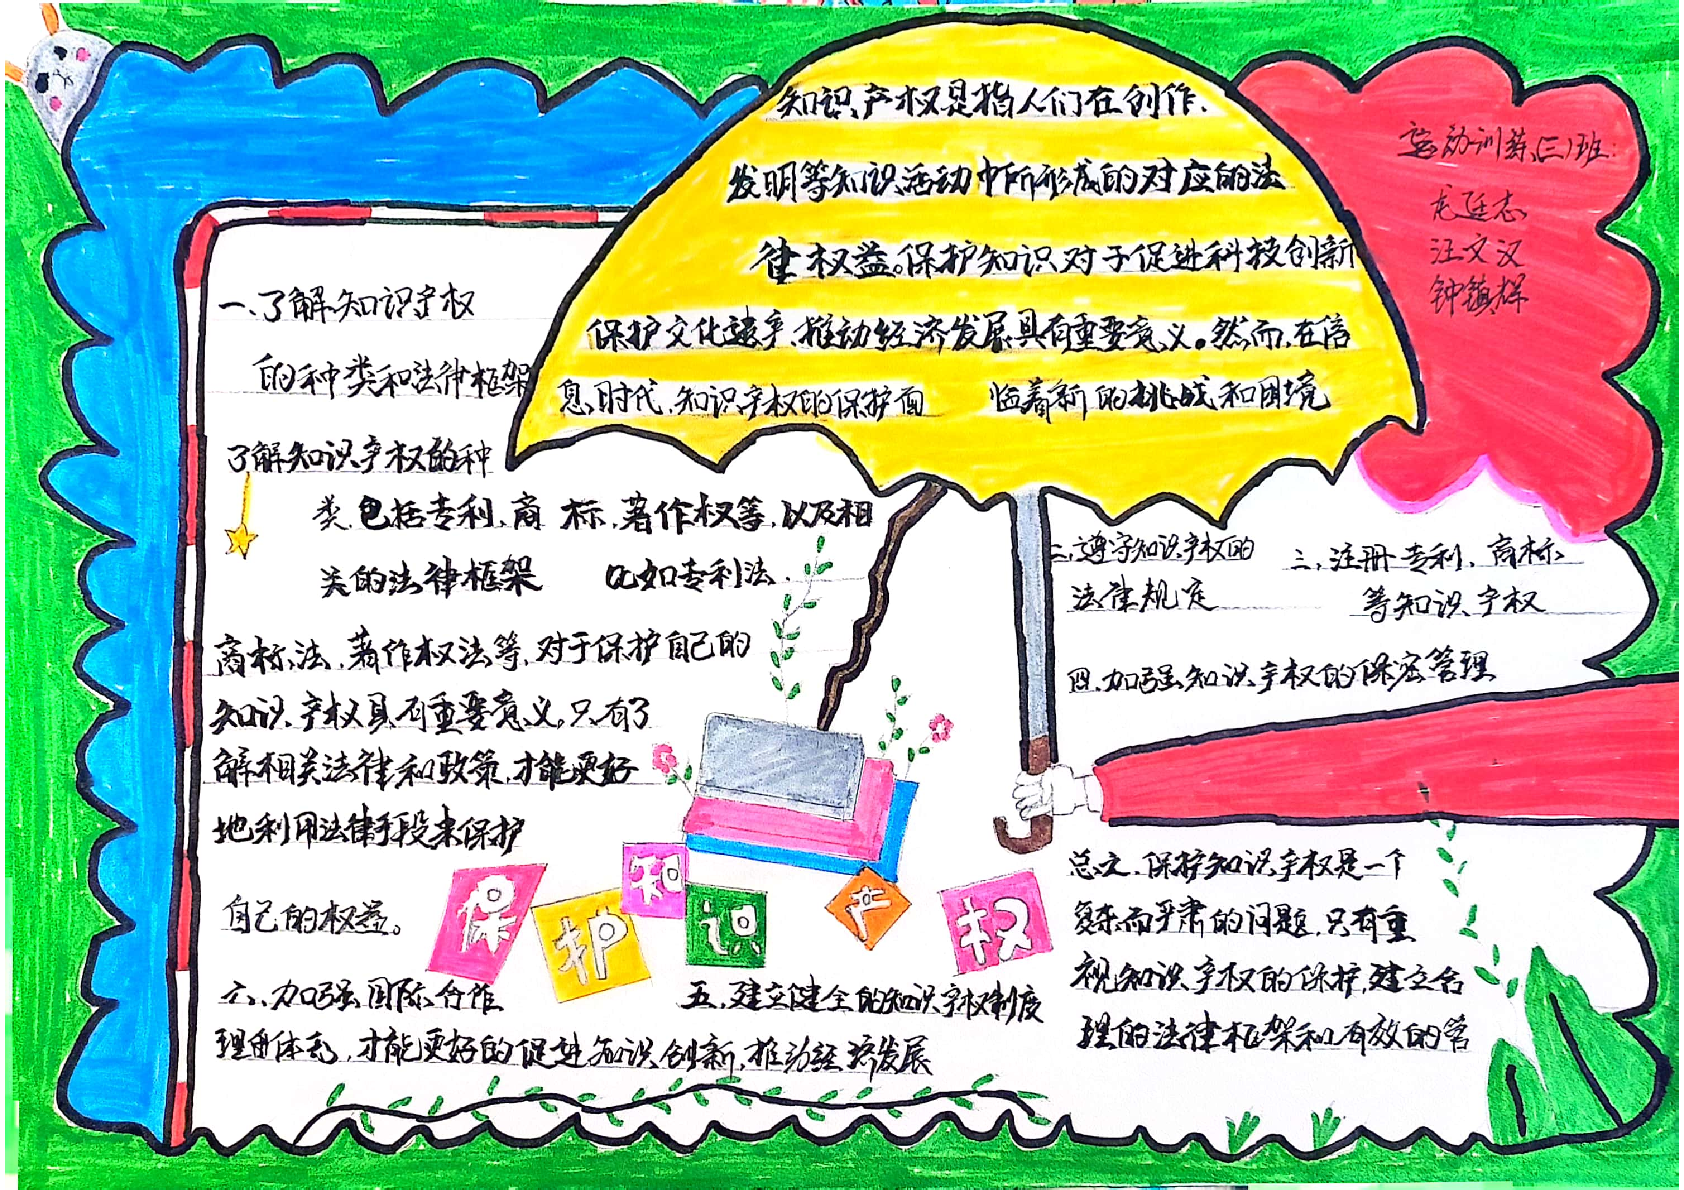 知识产权是指人们在创作、
发明等知识活动中所形成的对应的法
律权益。保护知识对于促进科技创新
保护文化遗产、推动经济发展具有重要意义。然而,在信
息时代,知识产权的保护面 临着新的挑战和困境
运动训练(三)班:
龙廷志
汪文汉
钟镇辉
一、了解知识产权
的种类和法律框架
了解知识产权的种
类包括专利、商标、著作权等,以及相
关的法律框架 比如专利法、
商标法、著作权法等,对于保护自己的
知识产权具有重要意义。只有了
解相关法律和政策,才能更好
地利用法律手段来保护
自己的权益。
二、遵守知识产权的
法律规定
三、注册专利、商标
等知识产权
四、加强知识产权的保密管理
保护知识产权
五、建立健全的知识产权制度
六、加强国际合作
总之,保护知识产权是一个
复杂而严肃的问题,只有重
视知识产权的保护,建立合
理的法律框架和有效的管
理体系,才能更好的促进知识创新,推动经济发展